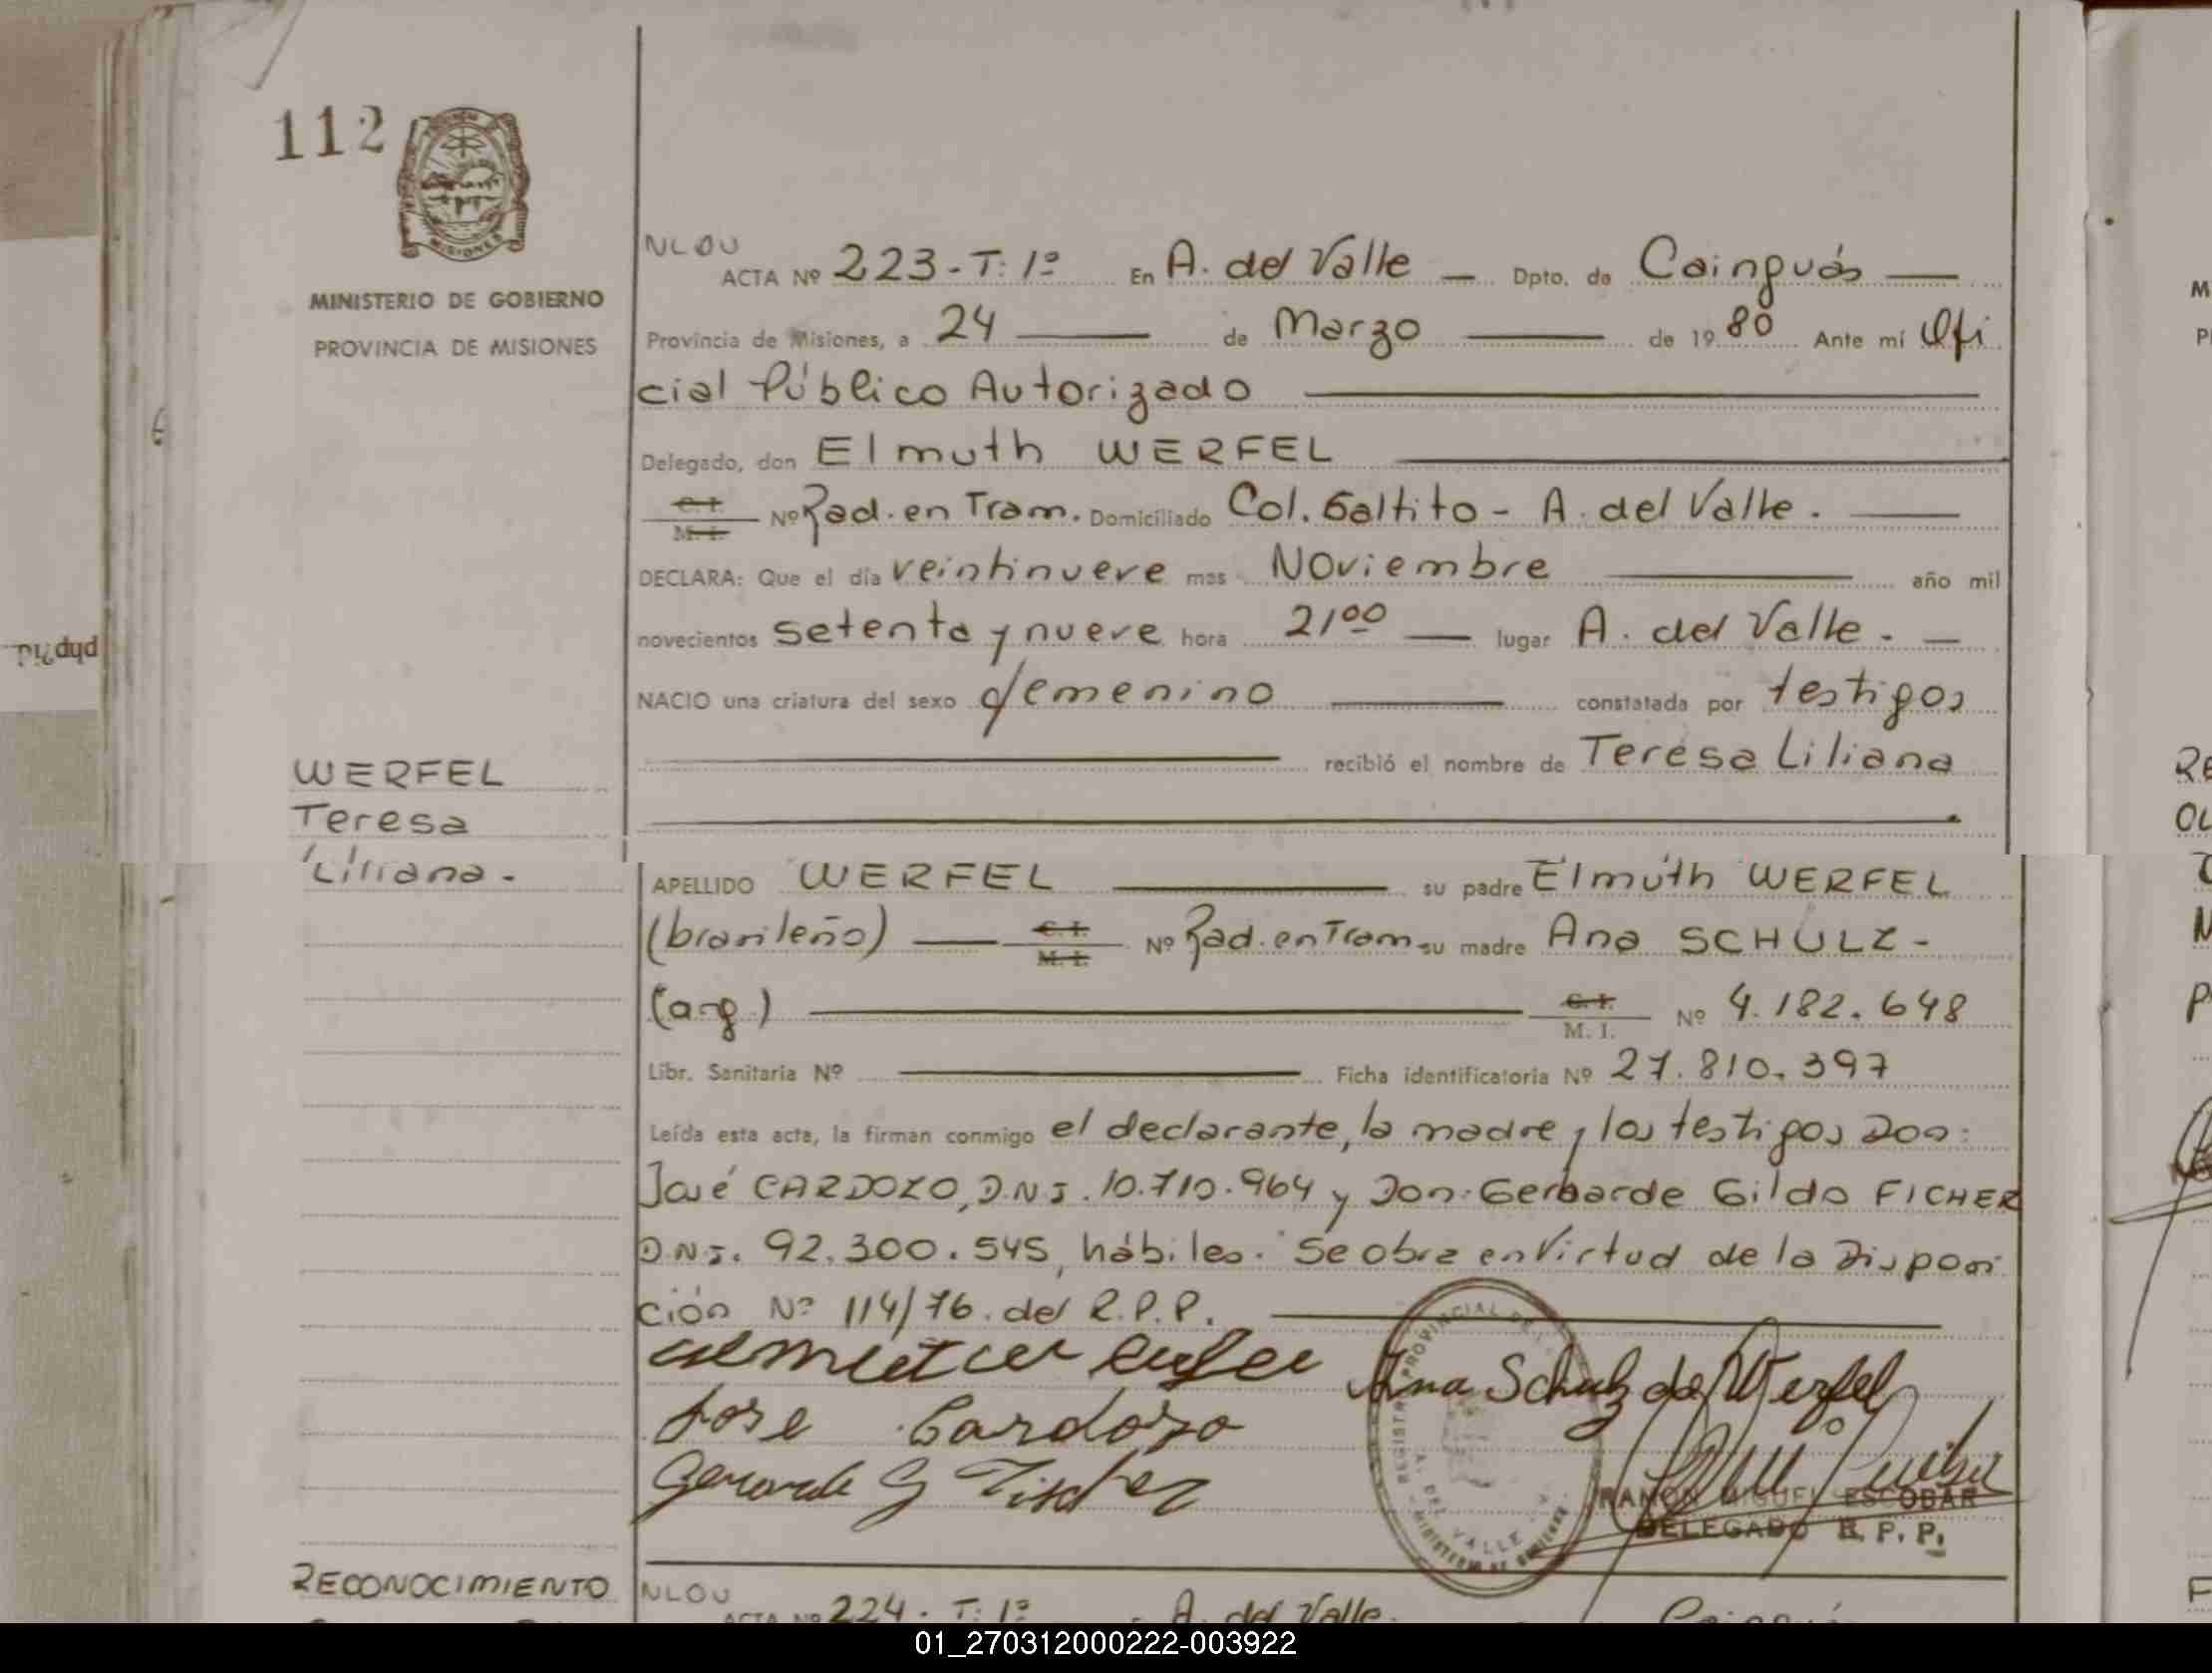 112
MISIONES
MINISTERIO DE GOBIERNO
PROVINCIA DE MISIONES
NLOU
ACTA Nº 223-T: 1º En A. del Valle — Dpto. de Cainguás —
Provincia de Misiones, a 24 — de Marzo — de 1980 Ante mí Ofi
cial Público Autorizado —
Delegado, don Elmuth WERFEL —
C. I. M. I. Nº Rad. en Tram. Domiciliado Col. Saltito - A. del Valle. —
DECLARA: Que el día veintinueve mes Noviembre — año mil
novecientos setenta y nueve hora 21⁰⁰ — lugar A. del Valle. —
NACIO una criatura del sexo femenino — constatada por testigos
— recibió el nombre de Teresa Liliana
WERFEL
Teresa
Liliana.
APELLIDO WERFEL — su padre Elmuth WERFEL
(brasileño) — C. I. M. I. Nº Rad. en Tram su madre Ana SCHULZ -
(arg.) — C. I. M. I. Nº 4.182.648
Libr. Sanitaria Nº — Ficha identificatoria Nº 27.810.397
Leída esta acta, la firman conmigo el declarante, la madre y los testigos Don:
José CARDOZO, D.N.I. 10.710.964 y Don: Gerharde Gildo FICHER
D.N.I. 92.300.545, hábiles. Se obra en Virtud de la Disposi
ción Nº 114/76. del R.P.P. —
Ana Schulz de Werfel
Jose Cardozo
G Fischer
RAMON MIGUEL ESCOBAR
DELEGADO R. P. P.
REGISTRO PROVINCIAL DE
A. DEL VALLE
MINISTERIO DE GOBIERNO
RECONOCIMIENTO
NLOU
ACTA Nº 224- T: 1º A. del Valle. Cainguás
01_270312000222-003922